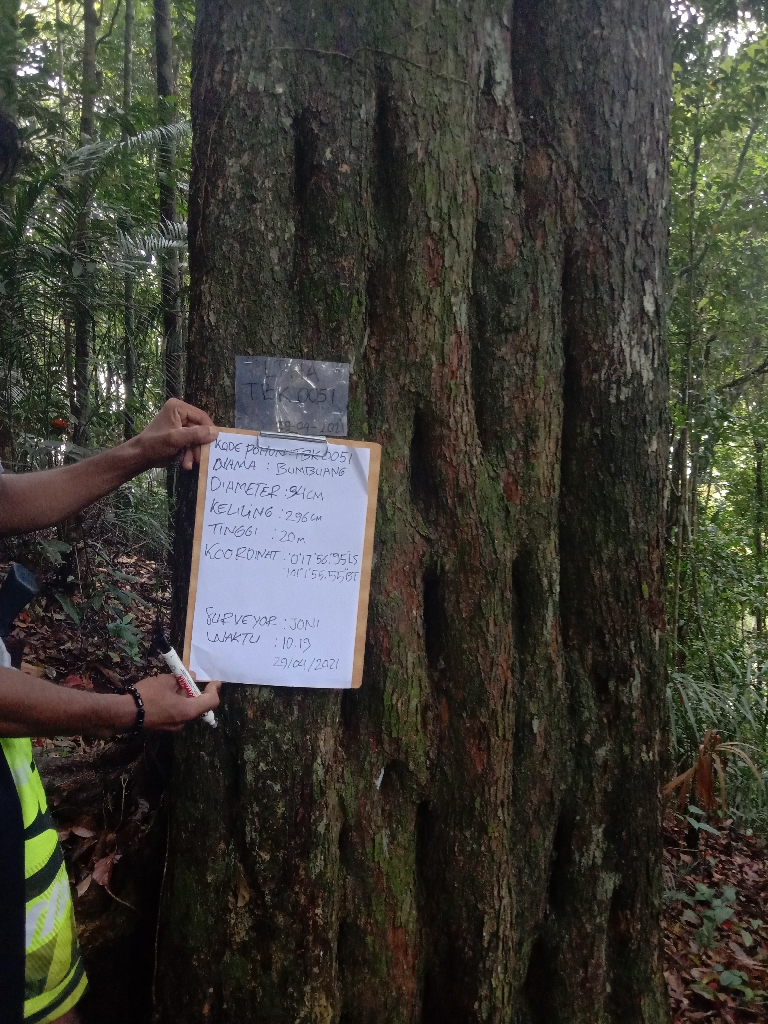 LPHA
TBK0051
29-04-2021
KODE POHON TBK0051
NAMA : BUMBUANG
DIAMETER : 94CM
KELILING : 296cm
TINGGI : 20m
KOORDINAT : 0°17'56.95"LS
55.55"BT
SURVEYOR : JONI
WAKTU : 10.19
29/04/2021